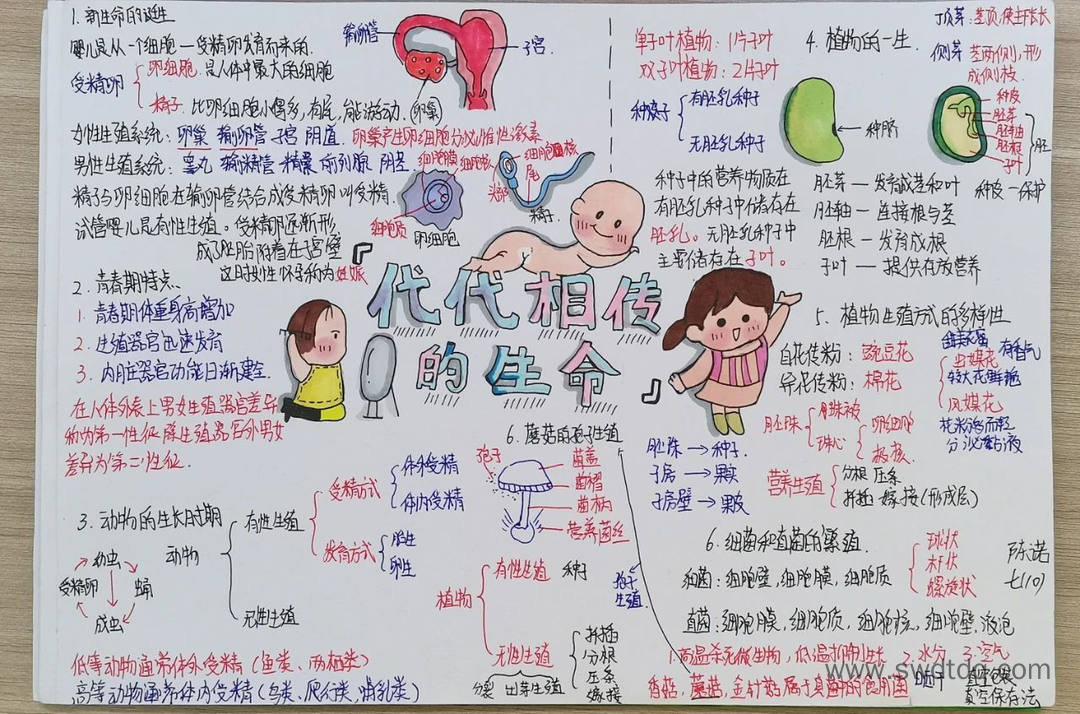 1. 新生命的诞生
婴儿是从一个细胞—受精卵发育而来的.
受精卵
卵细胞. 是人体中最大的细胞
精子. 比卵细胞小得多,有尾,能游动.
输卵管
子宫.
卵巢
女性生殖系统: 卵巢 输卵管 子宫 阴道. 卵巢产生卵细胞分泌雌性激素
男性生殖系统: 睾丸 输精管 精囊 前列腺 阴茎
精子与卵细胞在输卵管结合成受精卵叫受精.
试管婴儿是有性生殖。受精卵逐渐形
成了胚胎附着在子宫壁
这时女性怀孕称为妊娠
细胞膜 细胞核
细胞质
卵细胞
细胞核
尾
头部
精子.
2. 青春期特点
1. 青春期体重身高增加
2. 生殖器官迅速发育
3. 内脏器官功能日渐健全.
在人体外表上男女生殖器官差异
称为第一性征,除生殖器官外男女
差异为第二性征.
代代相传
的生命
3. 动物的生长时期
幼虫
受精卵
蛹
成虫
动物
有性生殖
无性生殖
受精方式
体外受精
体内受精
发育方式
胎生
卵生
低等动物通常体外受精 (鱼类、两栖类)
高等动物通常体内受精 (鸟类、爬行类、哺乳类)
单子叶植物: 1片子叶
双子叶植物: 2片子叶
4. 植物的一生.
顶芽: 茎顶,使主干长长
侧芽 茎两侧,形
成侧枝.
种子
有胚乳种子
无胚乳种子
种脐
种皮
胚芽
胚轴
胚根
子叶
胚
种子中的营养物质在
有胚乳种子中储存在
胚乳。无胚乳种子中
主要储存在子叶。
胚芽 — 发育成茎和叶
胚轴 — 连接根与茎
胚根 — 发育成根
子叶 — 提供存放营养
种皮—保护
5. 植物生殖方式的多样性
自花传粉: 豌豆花
异花传粉: 棉花
虫媒花
有香气
较大花鲜艳
风媒花
花粉多而轻
分泌黏液
胚珠
珠被
珠心
卵细胞
极核
胚珠 → 种子
子房 → 果
子房壁 → 果皮
营养生殖
分根 压条
扦插 嫁接 (形成层)
6. 蘑菇的孢子生殖
孢子
菌盖
菌褶
菌柄
营养菌丝
植物
有性生殖 种子
无性生殖
孢子
生殖.
扦插
分根
压条
嫁接
分裂 出芽生殖
6. 细菌和真菌的繁殖.
细菌: 细胞壁, 细胞膜, 细胞质
球状
杆状
螺旋状
陈诺
七(1)
真菌: 细胞膜, 细胞质, 细胞核, 细胞壁, 液泡
1. 高温杀死微生物, 低温抑制生长 2. 水分 3. 空气
香菇, 蘑菇, 金针菇属于真菌中的食用菌
真空保存法
www.swdtdq.com